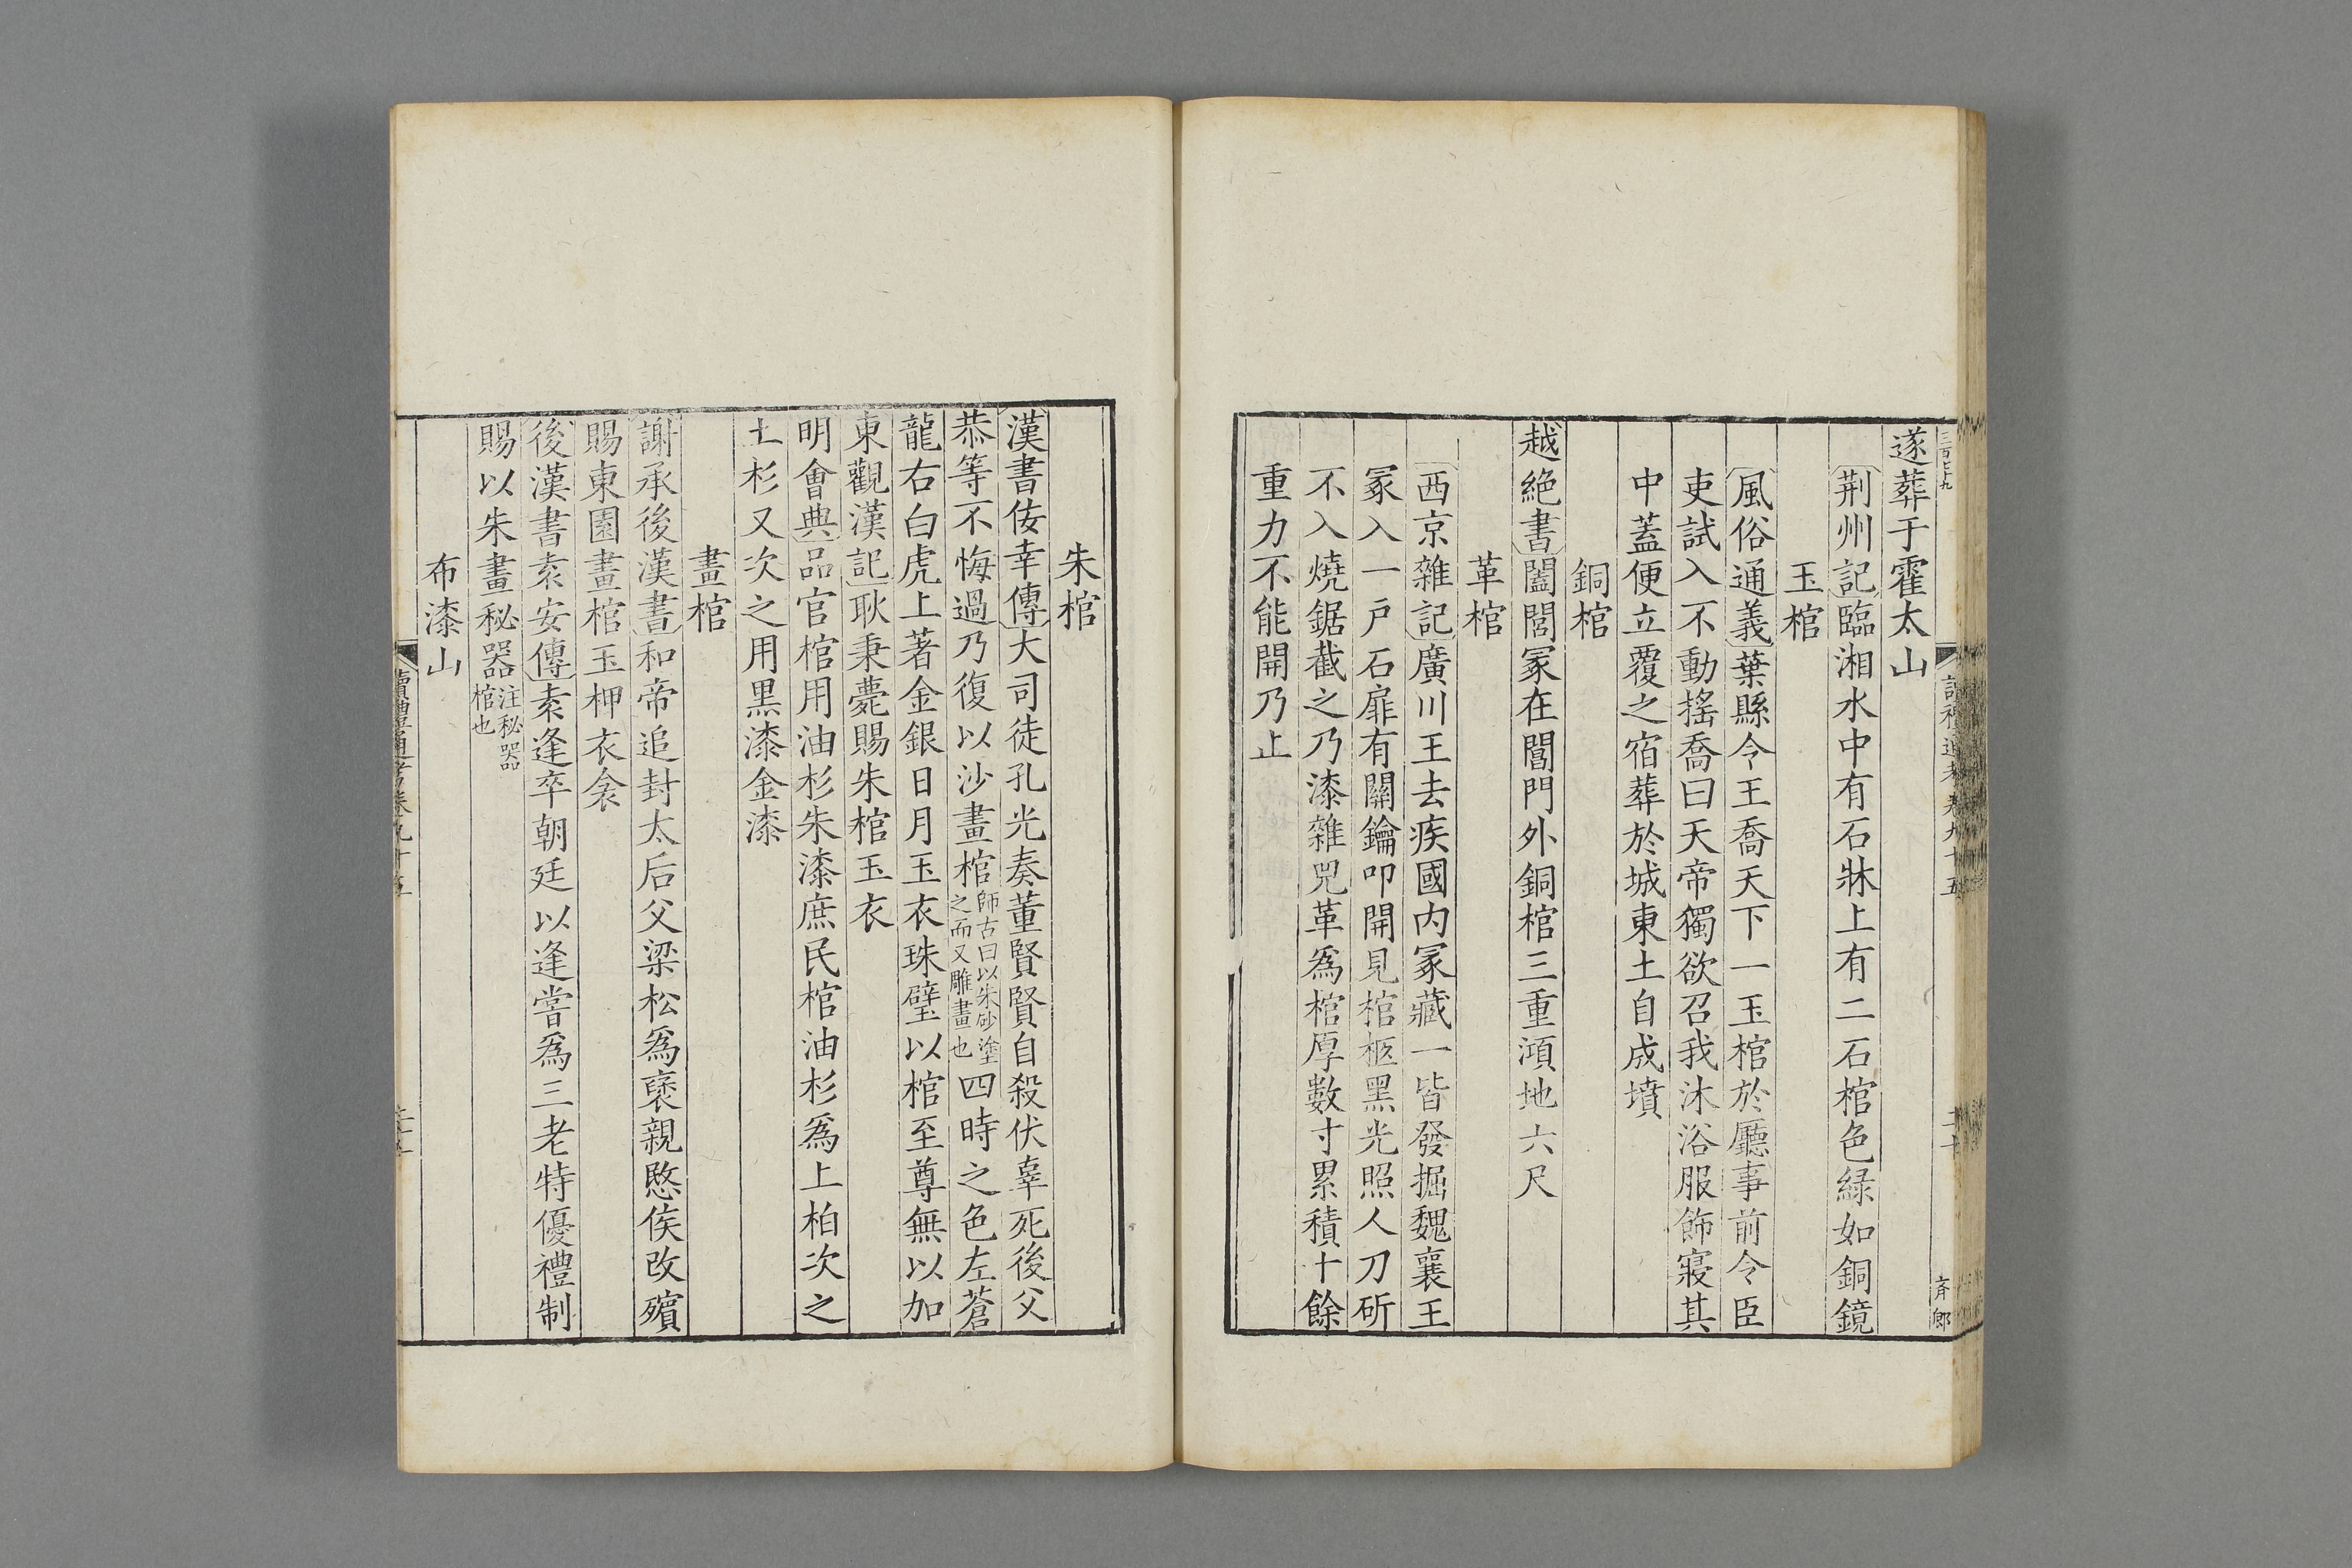 遂葬于霍太山
荆州記臨湘水中有石牀上有二石棺色緑如銅鏡
玉棺
風俗通義葉縣令王喬天下一玉棺於廳事前令臣
吏試入不動摇喬曰天帝獨欲召我沐浴服飾寢其
中蓋便立覆之宿葬於城東土自成墳
銅棺
越絶書闔閭冢在閶門外銅棺三重澒地六尺
革棺
西京雜記廣川王去疾國内冢藏一皆發掘魏襄王
冢入一戸石扉有關鑰叩開見棺柩黑光照人刀斫
不入燒鋸截之乃漆雜兕革爲棺厚數寸累積十餘
重力不能開乃止
朱棺
漢書佞幸傳大司徒孔光奏董賢賢自殺伏辜死後父
恭等不悔過乃復以沙畫棺師古曰以朱砂塗之而又雕畫也四時之色左蒼
龍右白虎上著金銀日月玉衣珠璧以棺至尊無以加
東觀漢記耿秉薨賜朱棺玉衣
明會典品官棺用油杉朱漆庶民棺油杉爲上柏次之
土杉又次之用黑漆金漆
畫棺
謝承後漢書和帝追封太后父梁松爲褒親愍侯改殯
賜東園畫棺玉柙衣衾
後漢書袁安傳袁逢卒朝廷以逢嘗爲三老特優禮制
賜以朱畫秘器注秘器棺也
布漆山
讀禮通考卷九十五